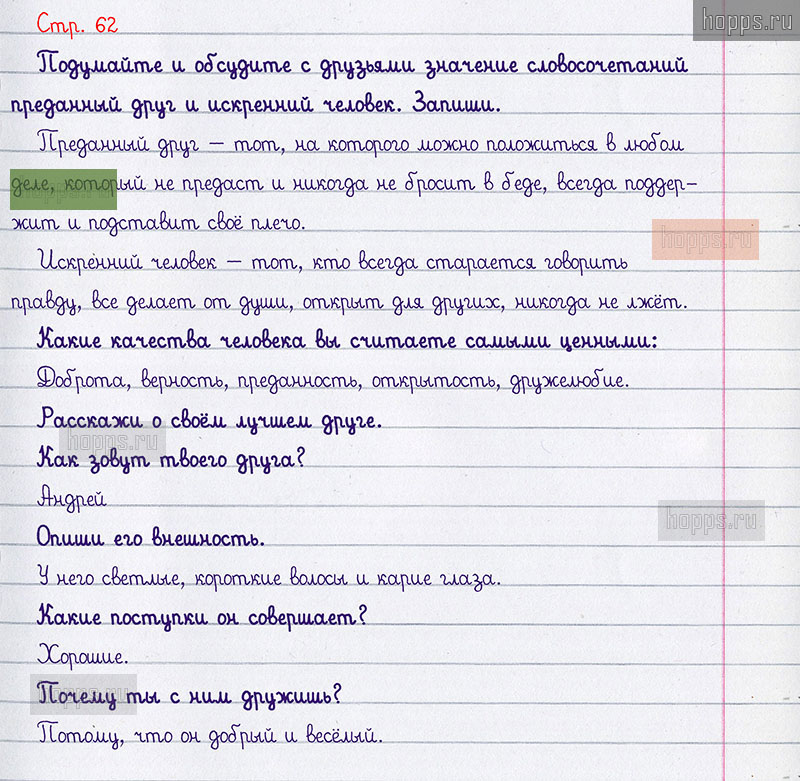 hopps.ru
Стр. 62
Подумайте и обсудите с друзьями значение словосочетаний
преданный друг и искренний человек. Запиши.
Преданный друг – тот, на которого можно положиться в любом
деле, который не предаст и никогда не бросит в беде, всегда поддер-
hopps.ru
жит и подставит своё плечо.
hopps.ru
Искренний человек – тот, кто всегда старается говорить
правду, все делает от души, открыт для других, никогда не лжёт.
Какие качества человека вы считаете самыми ценными:
Доброта, верность, преданность, открытость, дружелюбие.
Расскажи о своём лучшем друге.
hopps.ru
Как зовут твоего друга?
Андрей
hopps.ru
Опиши его внешность.
У него светлые, короткие волосы и карие глаза.
Какие поступки он совершает?
Хорошие.
Почему ты с ним дружишь?
hopps.ru
Потому, что он добрый и весёлый.